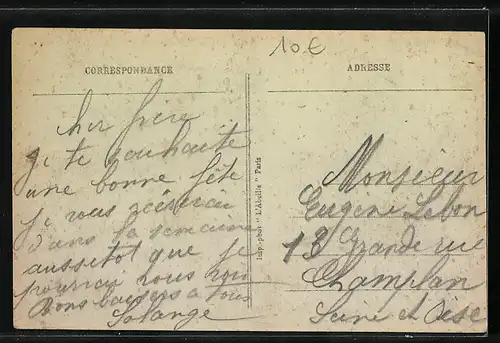 10€
CORRESPONDANCE
ADRESSE
Cher frère
Je te souhaite
une bonne fête
je vous écrirai
dans la semaine
aussitot que je
pourrai nous
Bons baisers à tous
Solange
Imp.-phot. "L'Abeille" Paris
Monsieur
Eugène Lebon
13 Grande rue
Champlan
Seine et Oise